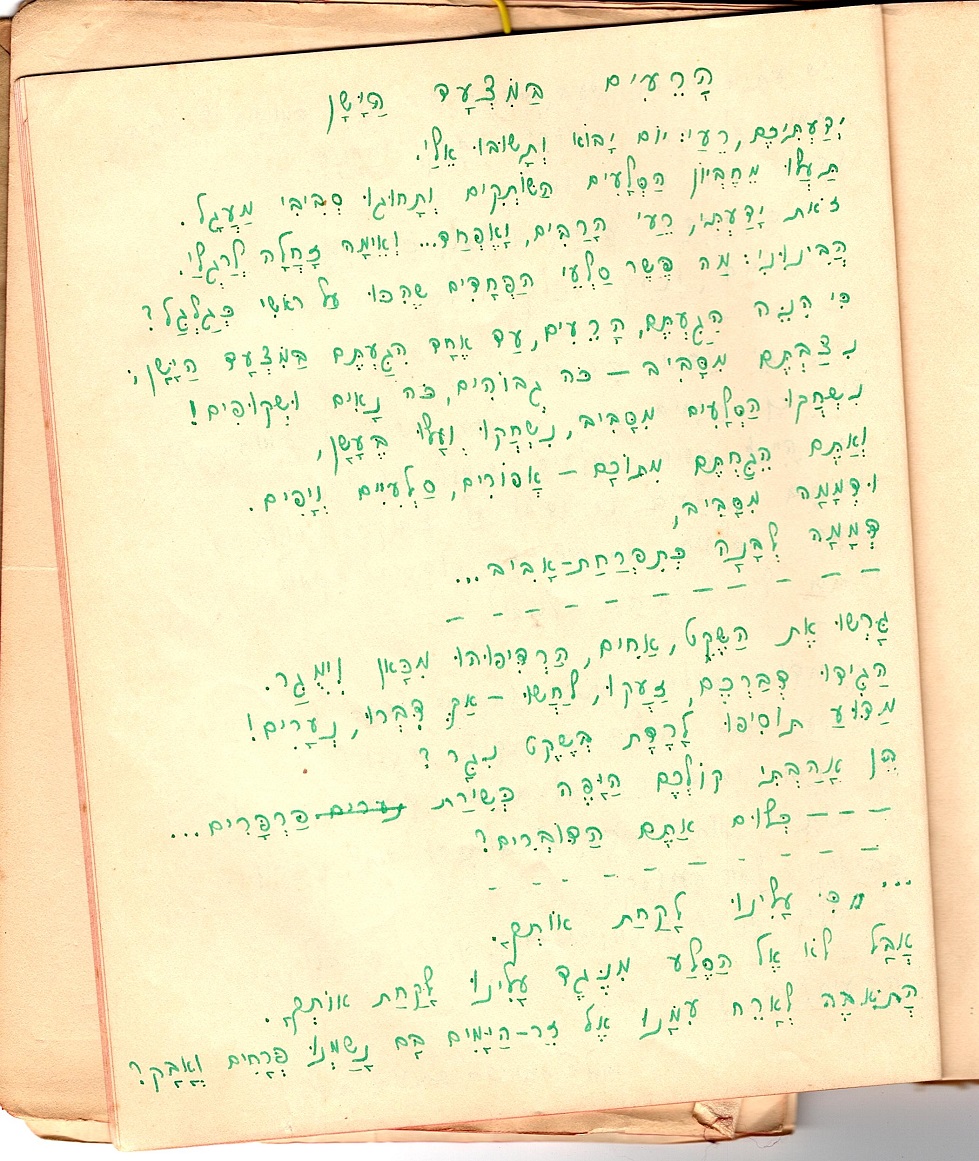 הָרֵעִים בַּמִּצְעָד הַיָּשָׁן
יְדַעְתִּיכֶם, רֵעַי: יוֹם יָבוֹא וְתָשׁוּבוּ אֵלַי.
תַּעֲלוּ מֵחֶבְיוֹן הַסְּלָעִים הַשּׁוֹתְקִים וְתָחוּגוּ סְבִיבִי מַעְגָּל.
זֹאת יָדַעְתִּי, רֵעַי הָרַבִּים, וָאֶפְחַד... וְאֵימָה זָחֲלָה לְרַגְלַי.
הֲבִינוּנִי: מַה פֵּשֶׁר סַלְעֵי הַפְּחָדִים שֶׁהִכּוּ עַל רֹאשִׁי כְּגַלְגַּל?
כִּי הִנֵּה הִגַּעְתֶּם, הָרֵעִים, עַד אֶחָד הִגַּעְתֶּם בַּמִּצְעָד הַיָּשָׁן;
נִצַּבְתֶּם מִסָּבִיב – כֹּה גְבוֹהִים, כֹּה נָאִים וּשְׁקוּפִים!
נִשְׁחֲקוּ הַסְּלָעִים מִסָּבִיב, נִשְׁחֲקוּ וְעָלוּ בֶּעָשָׁן,
וְאַתֶּם הֲגַחְתֶּם מִתּוֹכָם – אֲפוֹרִים, סַלְעִיִּים וְיָפִים.
וּדְמָמָה מִסָּבִיב,
דְּמָמָה לְבָנָה כְּתִפְרַחַת-אָבִיב...
– – – – – – – – – –
גָּרְשׁוּ אֶת הַשֶּׁקֶט, אַחִים, הַרְדִּיפוּהוּ מִכָּאן וְיֻמְגַּר.
הַגִּידוּ דְּבַרְכֶם, זַעֲקוּ, לַחֲשׁוּ – אַךְ דַּבְּרוּ, נְעָרִים!
מַדּוּעַ תּוֹסִיפוּ לָרֶדֶת בְּשֶׁקֶט נִגָּר?
הֵן אָהַבְתִּי קוֹלְכֶם הַיָּפֶה כְּשִׁירַת נערים פַּרְפָּרִים...
– – – כְּלוּם אַתֶּם הַדּוֹבְרִים?
– – – – – – – – – –
..." כִּי עָלֵינוּ לָקַחַת אוֹתְךָ.
אֲבָל לֹא אֶל הַסֶּלַע מִנֶּגֶד עָלֵינוּ לָקַחַת אוֹתְךָ.
הֲתֹאבֶה לְאָרֵחַ עִמָּנוּ אֶל זֵר-הַיָּמִים בָּם נָשַׁמְנוּ פְּרָחִים וְאָבָק?